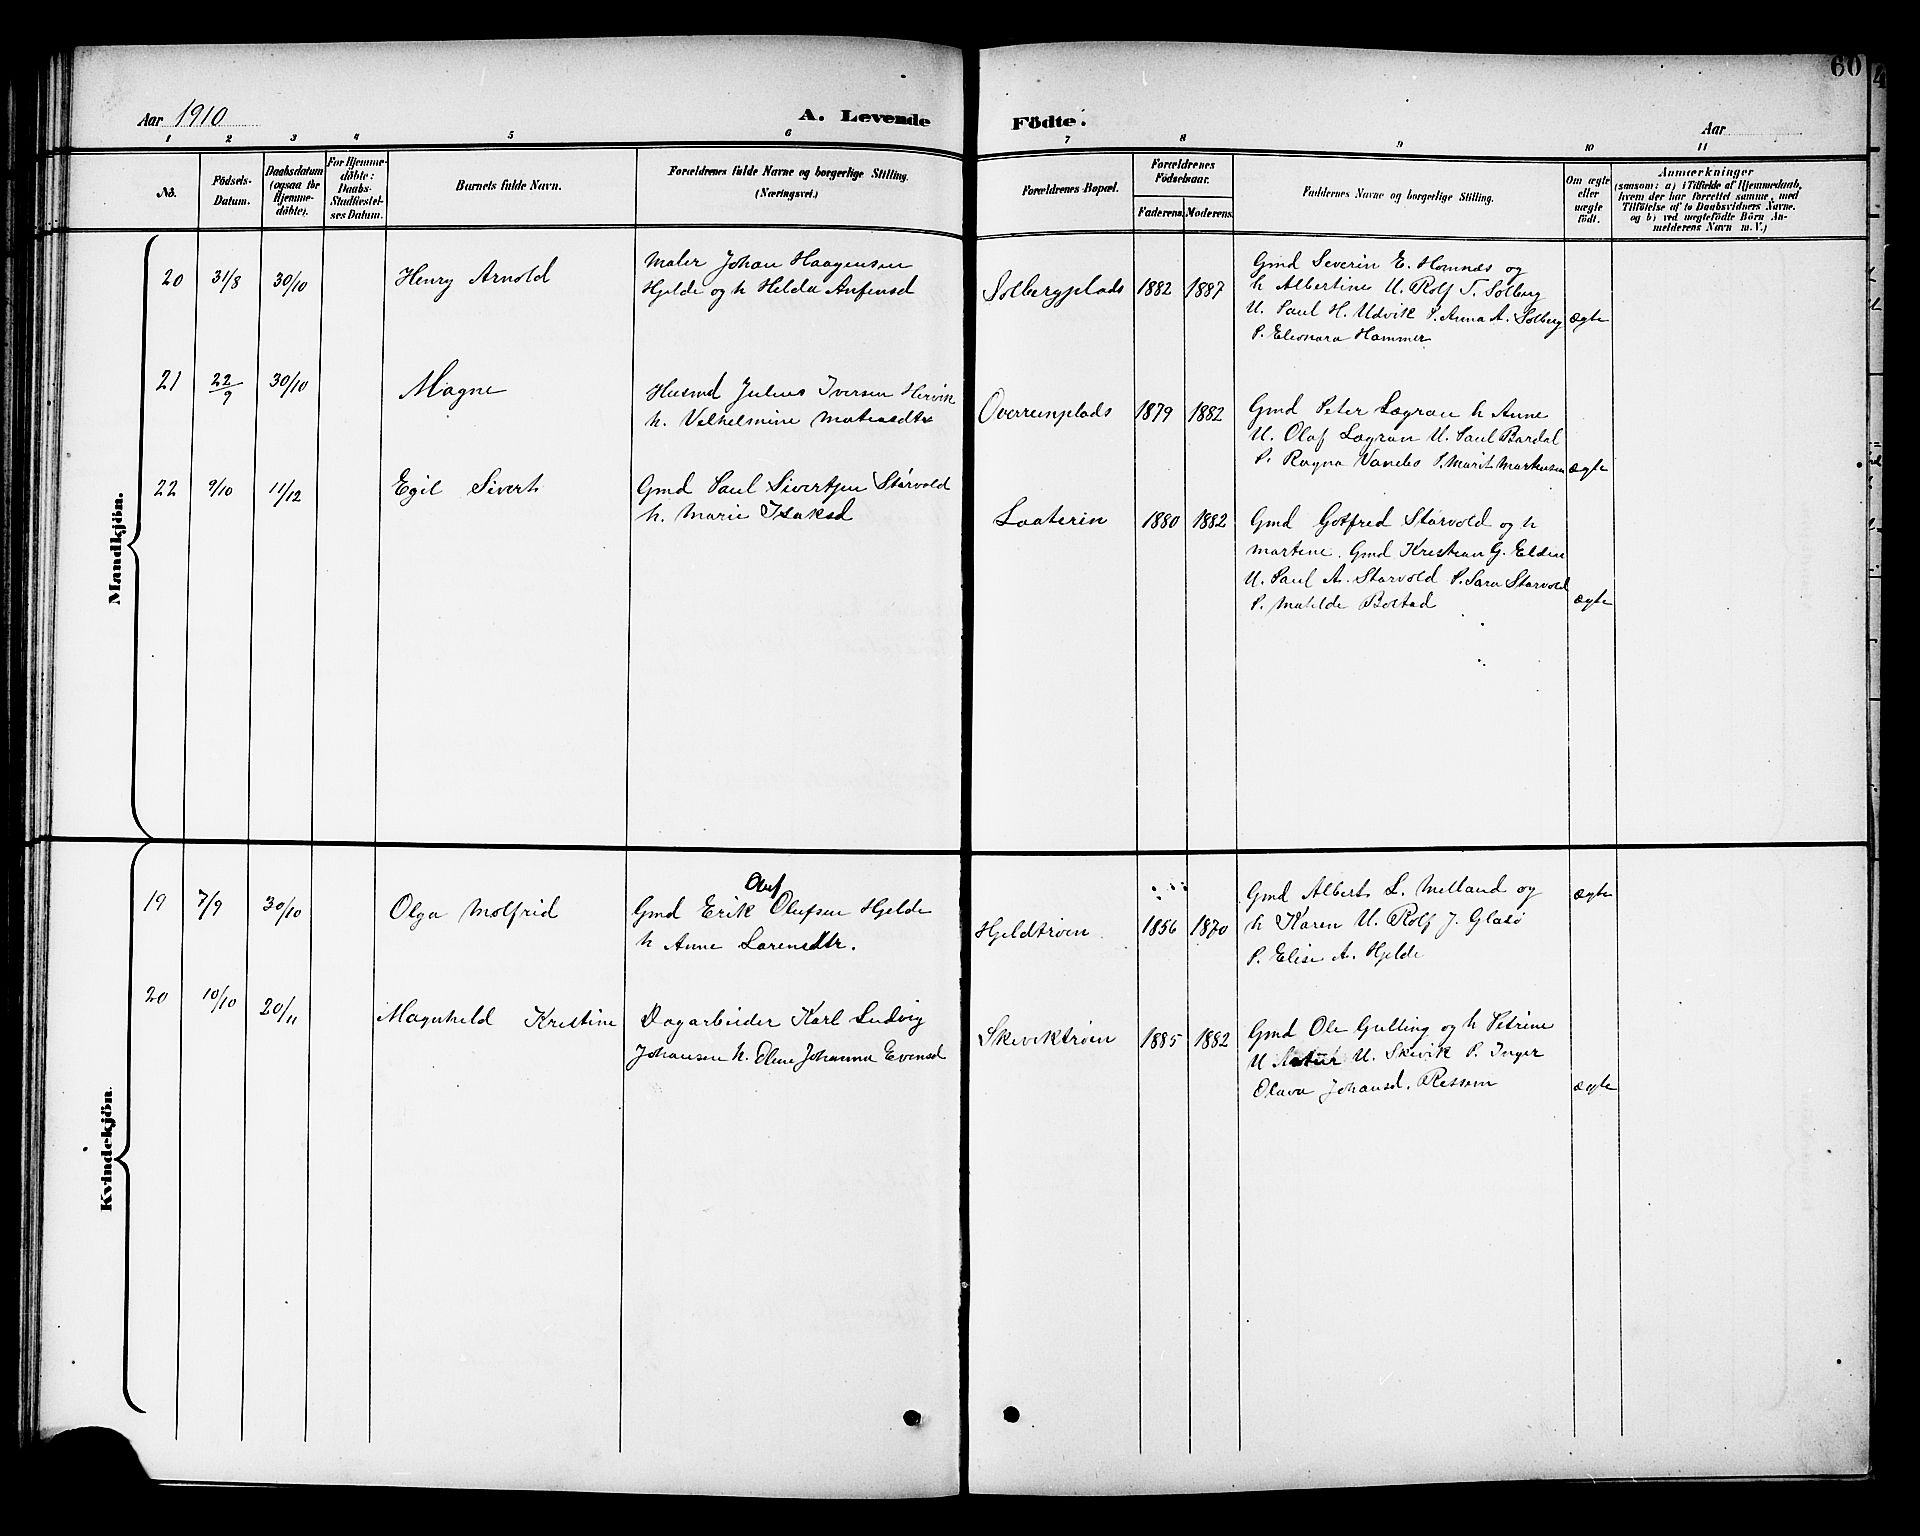 60
Aar 1910
A. Levende Födte.
Aar
1 2 3 4 5 6 7 8 9 10 11
No.
Födsels-
Datum.
Daabsdatum
(ogsaa for
Hjemme-
döbte).
For Hjemme-
döbte:
Daabs-
Stadfæstel-
ses Datum.
Barnets fulde Navn.
Forældrenes fulde Navne og borgerlige Stilling.
(Næringsvei.)
Forældrenes Bopæl.
Forældrenes
Födselsaar.
Faderens. Moderens.
Faddernes Navne og borgerlige Stilling.
Om ægte
eller
uægte
födt.
Anmærkninger
(saasom: a) i Tilfælde af Hjemmedaab,
hvem der har forrettet samme, med
Tilföielse af to Daabsvidners Navne.
og b) ved uægtefödte Börn An-
melderens Navn m. V.)
Mandkjön.
20 31/8 30/10 Henry Arnold
Maler Johan Haagensen
Hjelde og h Helda Anfinsd
Solbergplads 1882 1887
Gmd Severin E. Homnæs og
h Albertine U. Rolf T. Solberg
U. Paul H. Udvik P. Anna A. Solberg
P. Eleonara Hammer
ægte
21 22/9 30/10 Magne
Husmd Julius Iversen Hervik
h. Velhelmine Mateasdtr
Overreinplads 1879 1882
Gmd Peter Lægran h Anne
U. Olaf Lægran U. Paul Bardal
P. Ragna Vanebo P. Marit Markusen
ægte
22 9/10 11/12 Egil Sivert
Gmd Paul Sivertsen Størvold
h. Marie Isaksd
Laaterin 1880 1882
Gmd Gotfred Størvold og h
Martine. Gmd Kristian G. Elden
U. Paul A. Størvold P. Sara Størvold
P. Matilde Bolstad
ægte
Kvindekjön.
19 7/9 30/10 Olga Molfrid
Oluf
Gmd Erik Olufsen Hjelde
h Anne Larensdtr.
Hjeldtrøen 1856 1870
Gmd Albert L. Melland og
h Karen U. Rolf J. Glasø
P. Elise A. Hjelde
ægte
20 10/10 20/11 Magnhild Kristine
Dagarbeider Karl Ludvig
Johansen h. Oline Johanna Evensd
Skeviktrøen 1885 1882
Gmd Ole Gulling og h Petrine
U U. Skevik P. Inger
Olava Johansd. Rissem
ægte